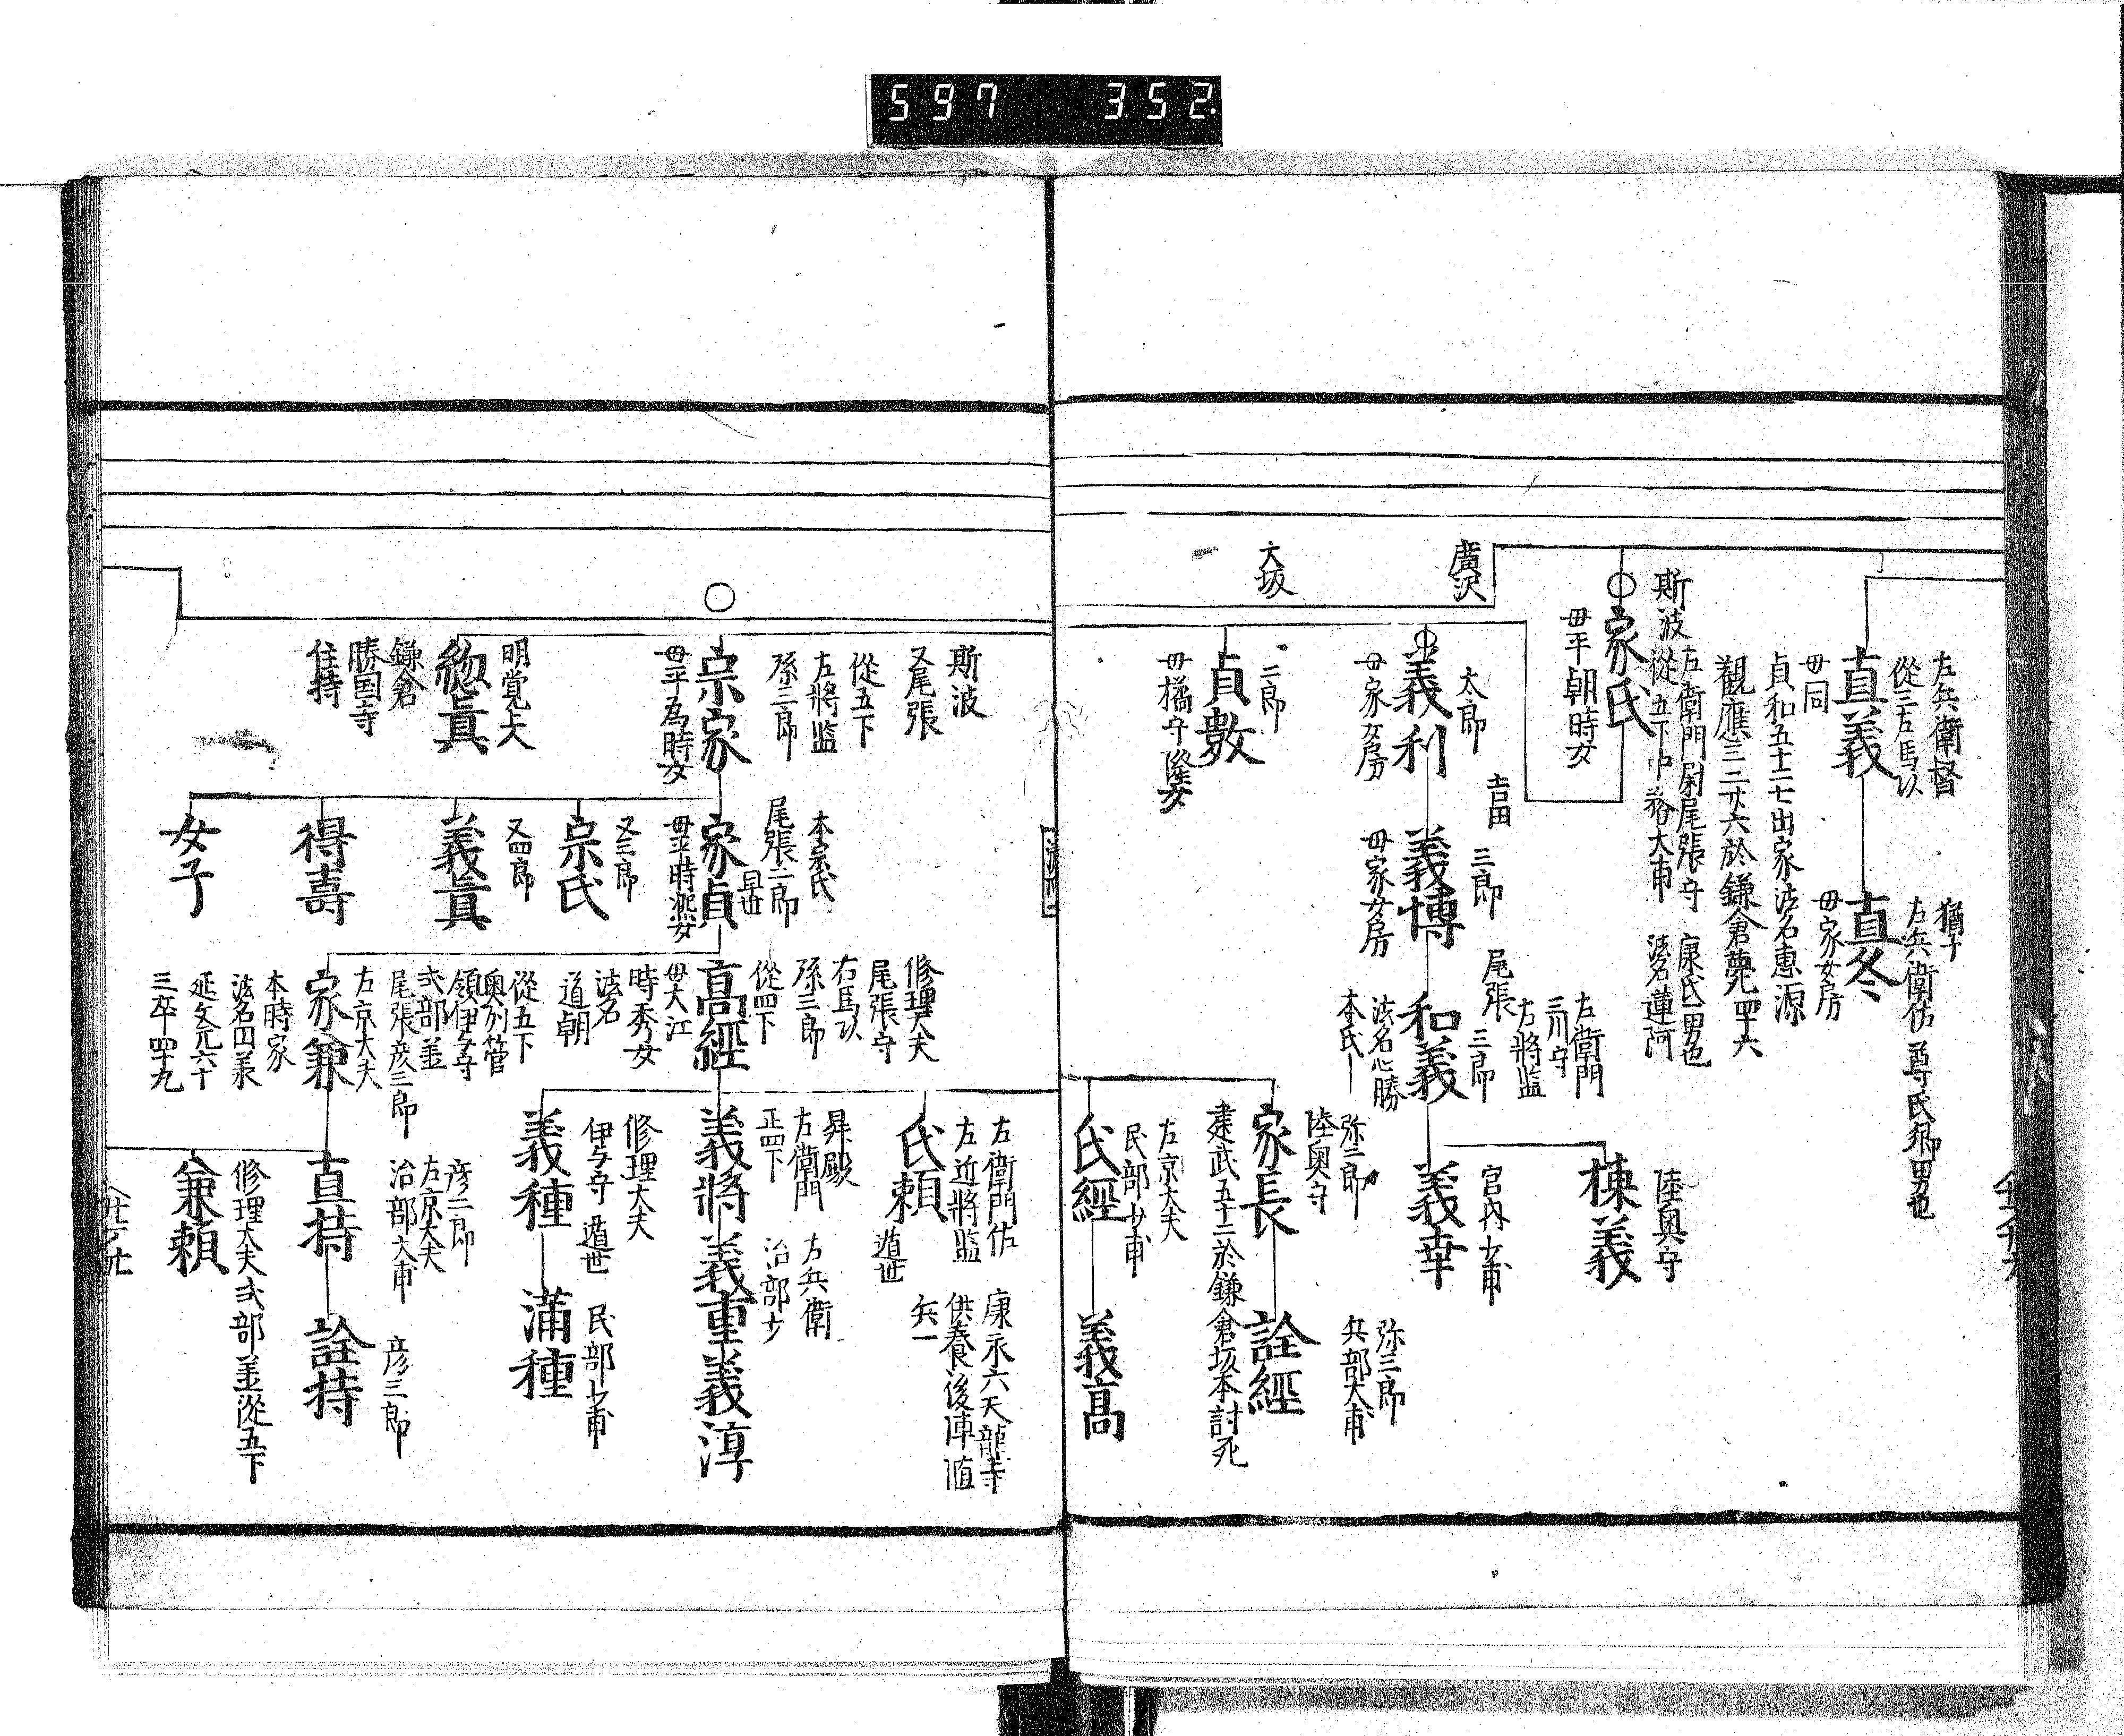 597 352
左兵衛督
從三左馬以
直義
母同
貞和五十二七出家法名恵源
觀應三二廿六於鎌倉薨四十六
猶子
左兵衛佐 尊氏卿男也
直冬
母家女房
斯波
左衛門尉尾張守 康氏男也
從五下中務大甫 法名蓮阿
家氏
母平朝時女
廣沢
大坂
太郎
義利
母家女房
吉田 三郎
義博
母家女房
尾張三郎
左衛門
三川守
左將監
和義
法名心勝
本氏
陸奥守
棟義
宮内少甫
義幸
二郎
貞數
母橘守隆女
弥三郎
陸奥守
家長
建武五十二於鎌倉坂本討死
弥三郎
兵部大甫
詮經
左京大夫
民部少甫
氏經
義高
斯波
又尾張
從五下
左將監
孫三郎
宗家
母平為時女
明覚上人
鎌倉
勝国寺
住持
本宗氏
尾張二郎
早世
家貞
母平時継女
又三郎
宗氏
又四郎
義眞
得壽
女子
修理大夫
尾張守
右馬以
孫三郎
從四下
高經
母大江
時秀女
法名
道朝
從五下
奥州管
領伊与守
式部丞
尾張彦三郎
左京大夫
家兼
本時家
法名円承
延文元六十
三卒四十九
左衛門佐
左近將監
氏頼
遁世
康永六天龍寺
供養後陣随
兵一
昇殿
左衛門
正四下
義將
左兵衛
治部少
義重
義淳
修理大夫
伊与守 遁世
義種
民部少甫
満種
彦二郎
左京大夫
治部大甫
直持
彦三郎
詮持
修理大夫式部丞從五下
兼頼